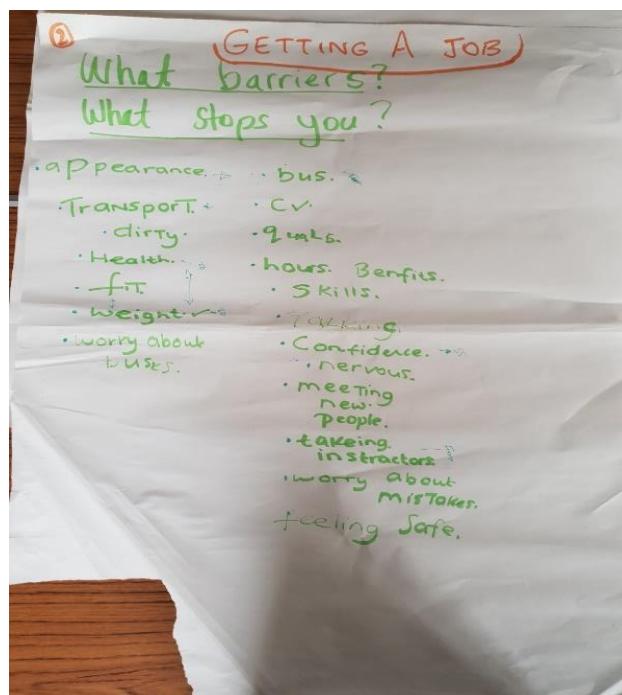 2
GETTING A JOB
What barriers?
What stops you?
· appearance.
· TransporT.
· dirty.
· Health.
· fiT.
· weight.
· worry about
busts.
· bus.
· CV.
· quals.
· hours. Benfits.
· Skills.
· Talking.
· Confidence.
· nervous.
· meeTing
new.
people.
· takeing
instractors
· worry about
misTakes.
feeling Safe.